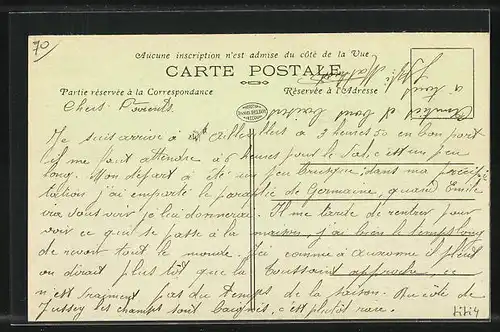 70
Aucune inscription n'est admise du côté de la Vue
CARTE POSTALE
Partie réservée à la Correspondance
Réservée à l'Adresse
Chers Parents
Je suis arrivé à à 9 heures 50 en bon port
il me faut attendre à 6 heures pour le c'est un peu
long. Mon départ a été un peu brusque; dans ma précipi
tation, j'ai emporté le parapluie de Germaine, quand Emile
vra vous voir je lui donnerai. Il me tarde de rentrer pour
voir ce qui se passe à la maison, j'ai bien le temps long
de revoir tout le monde. Ici comme à Auxonne il pleut
on dirait plus tôt que la Toussaint approche, ce
n'est vraiment pas du temps de la saison. Du côté de
Jussey les champs sont c'est plutôt rare.
Amitié et bons baisers
à tous